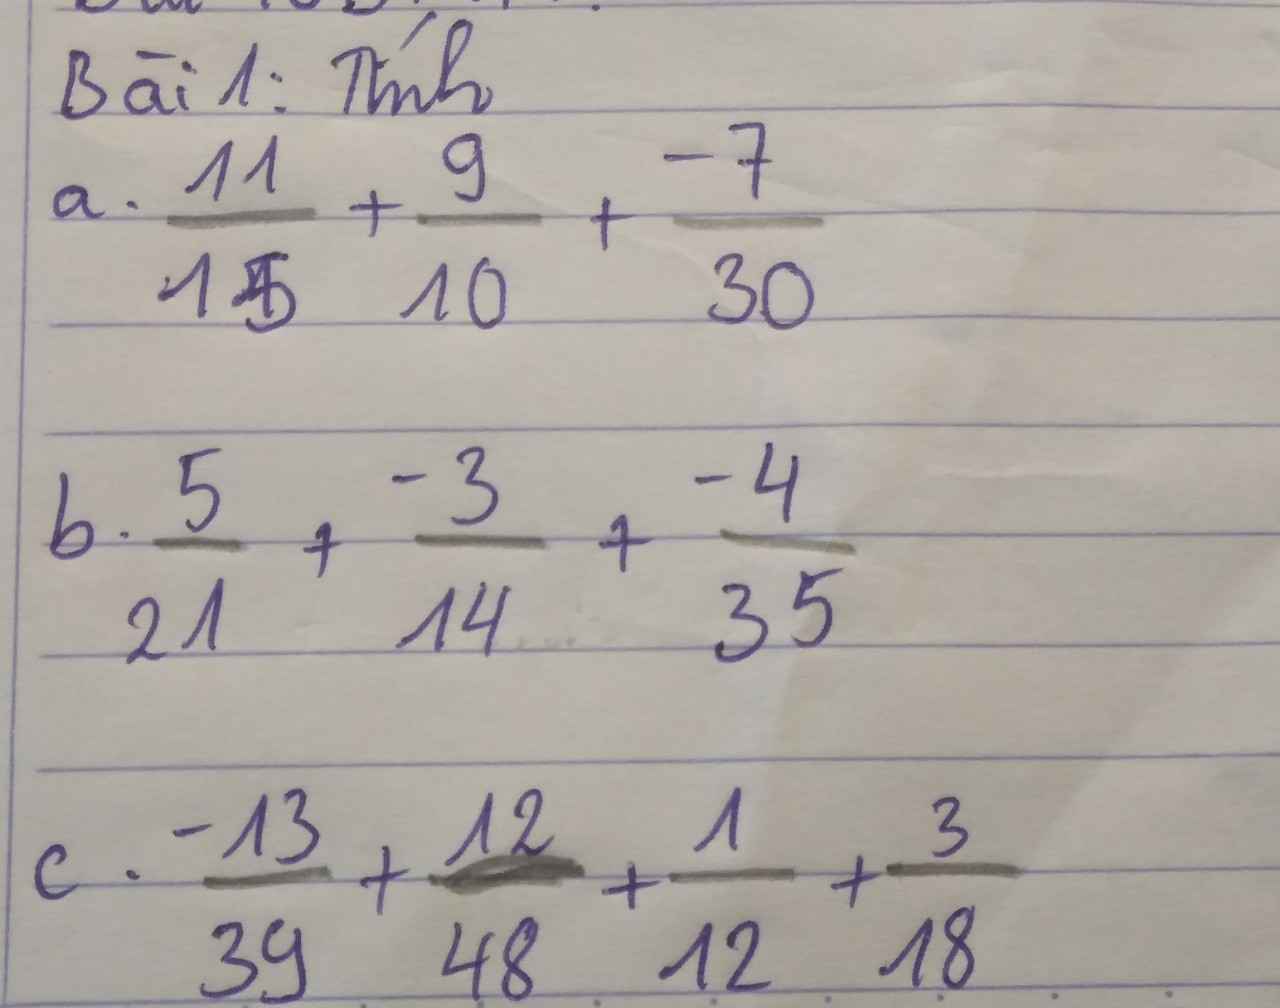 Bài 1: Tính
a. 11/15 + 9/10 + -7/30
b. 5/21 + -3/14 + -4/35
c. -13/39 + 12/48 + 1/12 + 3/18